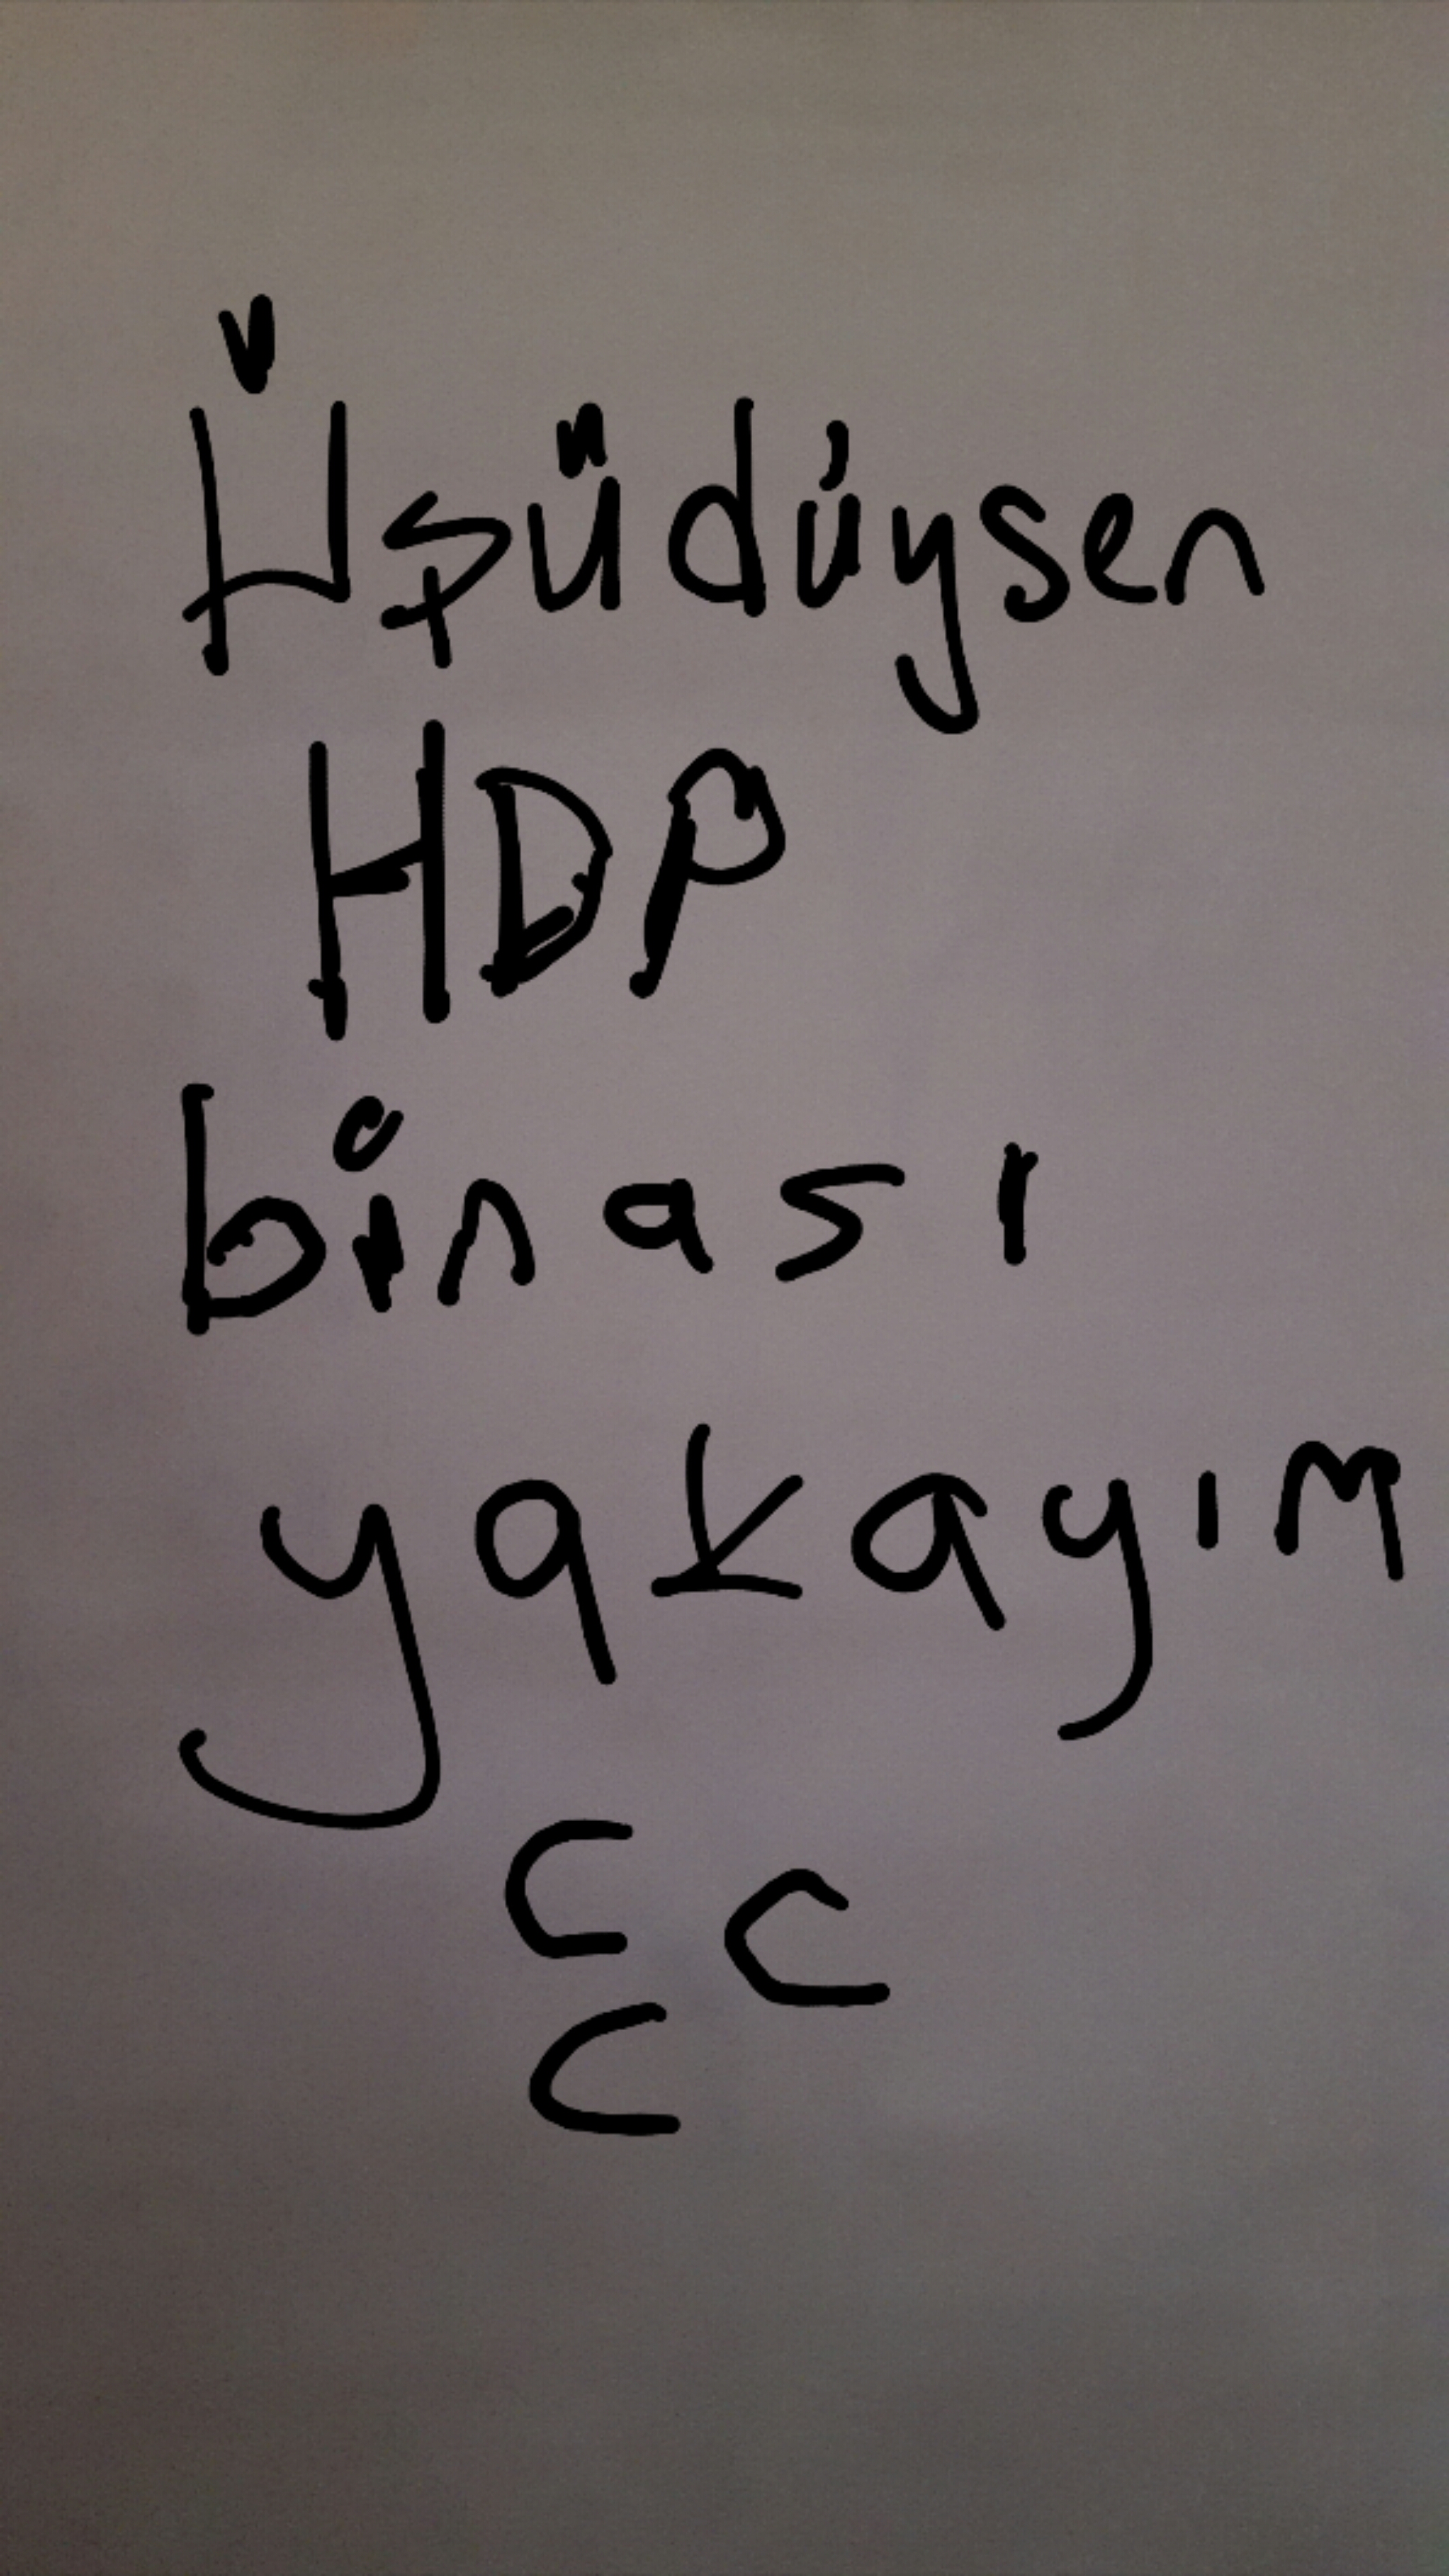 Üşüdüysen
HDP
binası
yakayım
C C
C